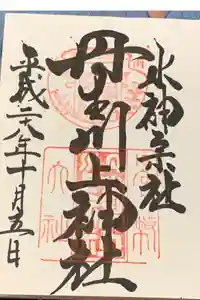 水神宗社
丹生川上神社
平成二十八年十月五日